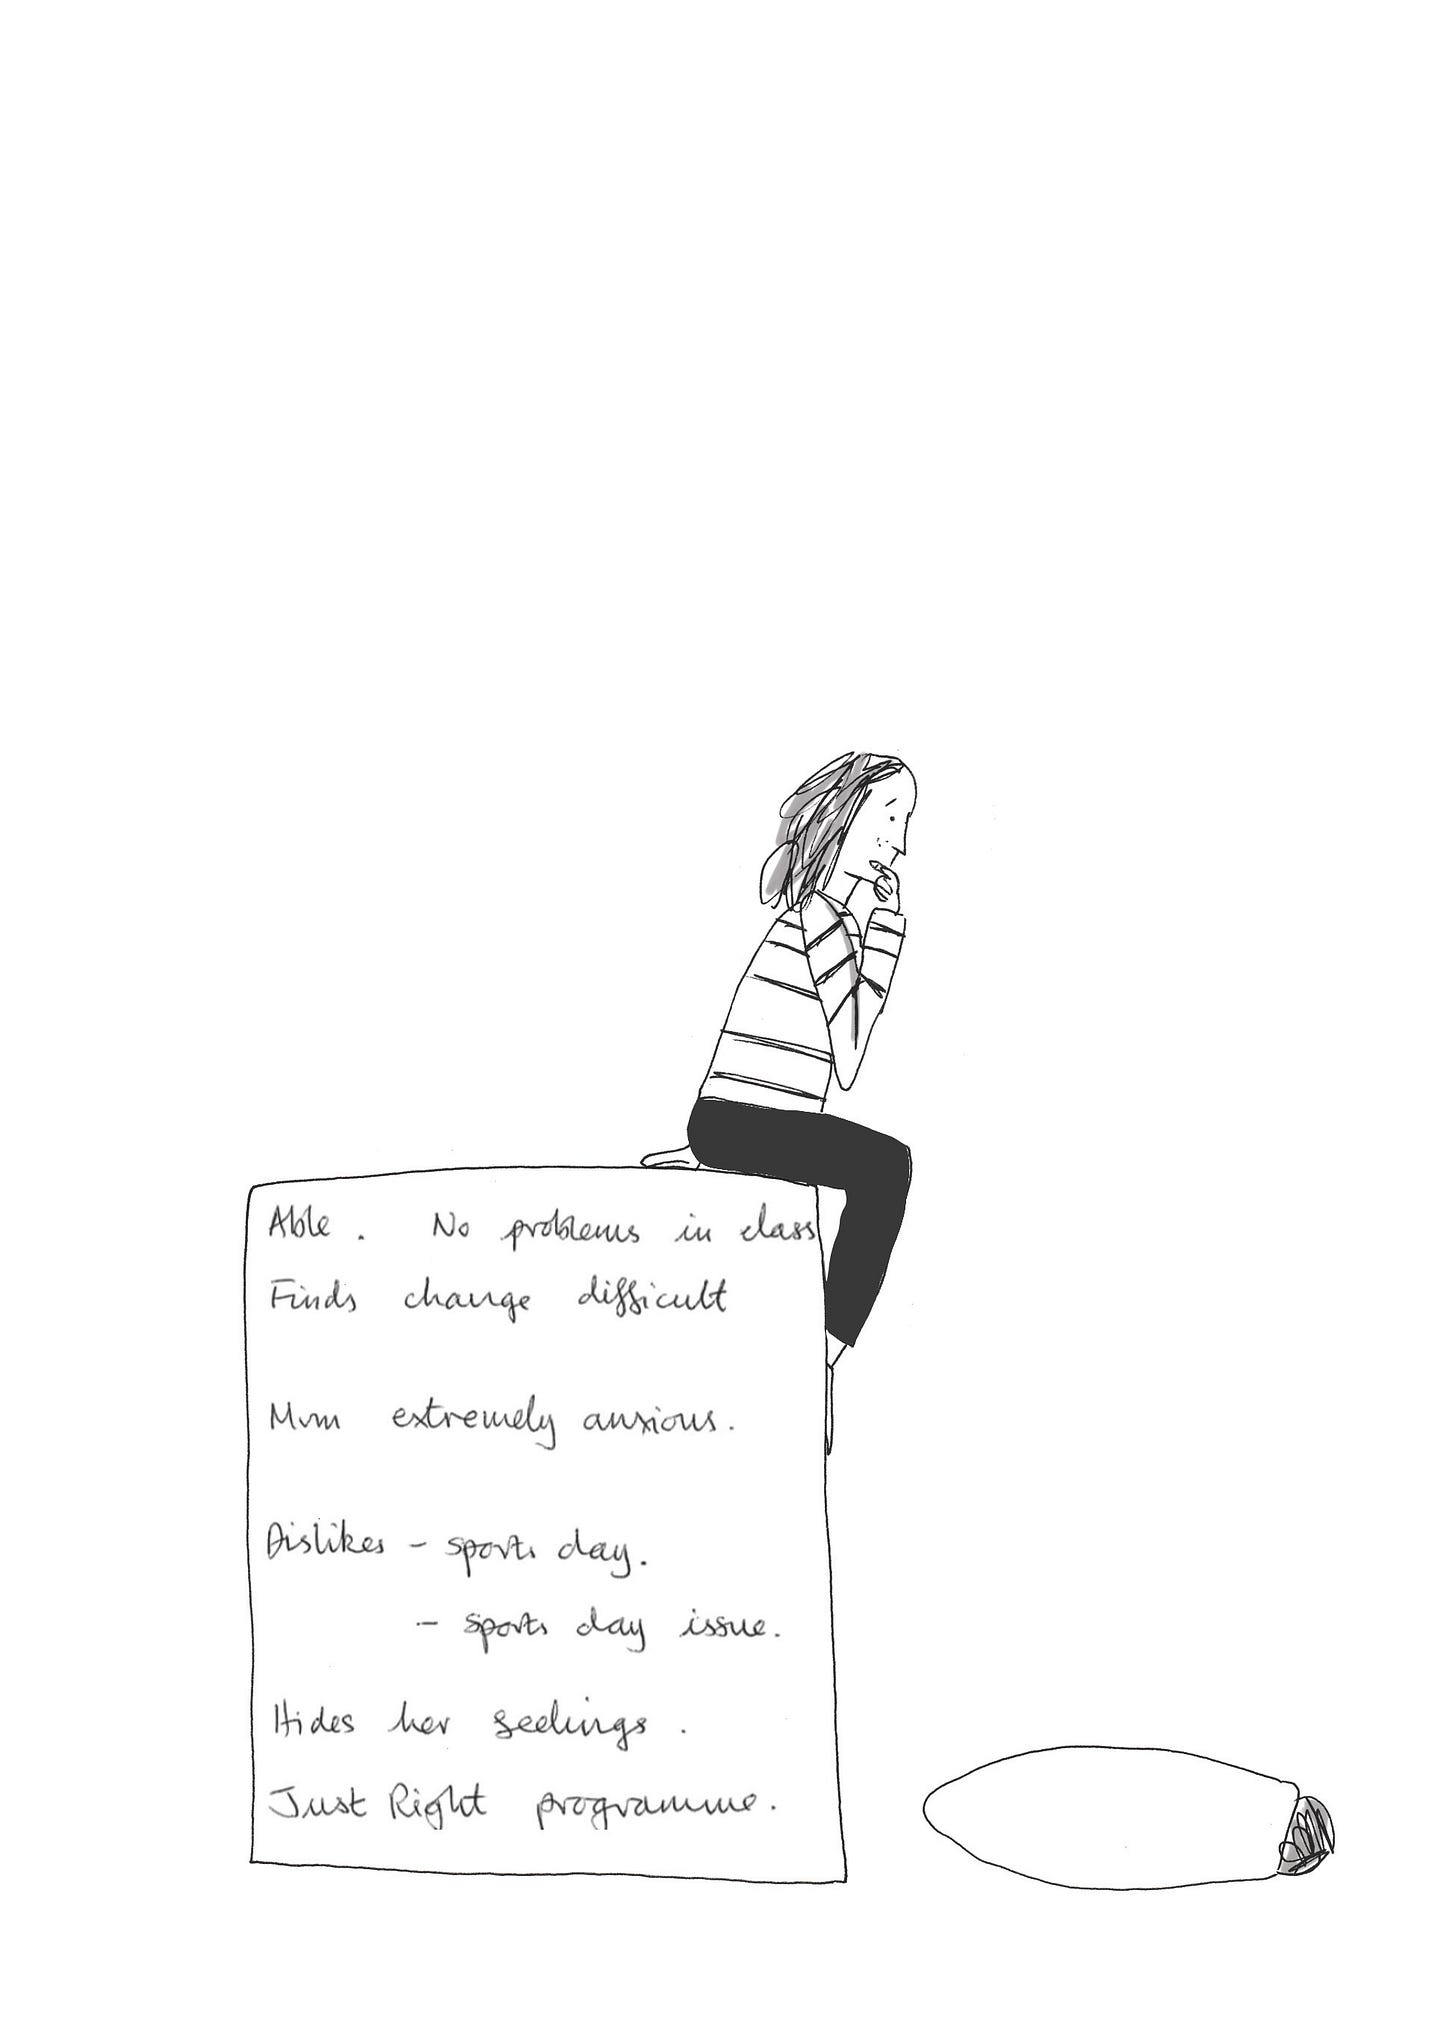 Able . No problems in class
Finds change difficult
Mum extremely anxious.
Dislikes - sports day.
- sports day issue.
Hides her feelings .
Just Right programme.